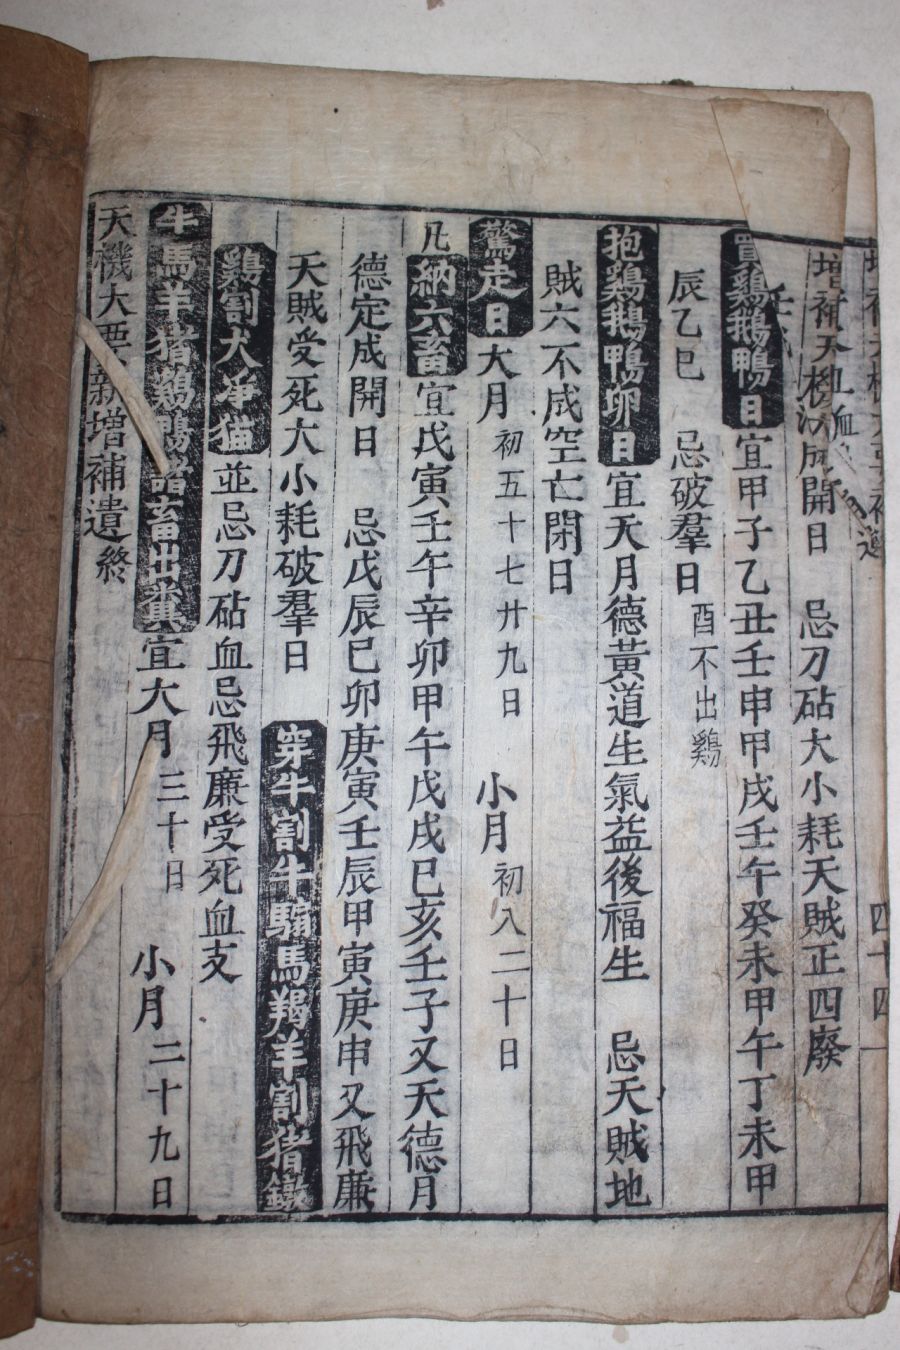 增補天機
四十四
成開日　忌刀砧大小耗天賊正四廢
買鷄鵝鴨日宜甲子乙丑壬申甲戌壬午癸未甲午丁未甲
辰乙巳　忌破羣日酉不出鷄
抱鷄鵝鴨卵日宜天月德黃道生氣益後福生　忌天賊地
賊六不成空亡閉日
驚走日大月初五十七廿九日　小月初八二十日
凡納六畜宜戊寅壬午辛卯甲午戊戌巳亥壬子又天德月
德定成開日　忌戊辰巳卯庚寅壬辰甲寅庚申又飛廉
天賊受死大小耗破羣日　穿牛割牛騸馬羯羊割猪鐓
鷄割犬淨猫並忌刀砧血忌飛廉受死血支
牛馬羊猪鷄鴨諸畜出糞宜大月三十日　小月二十九日
天機大要新增補遺終